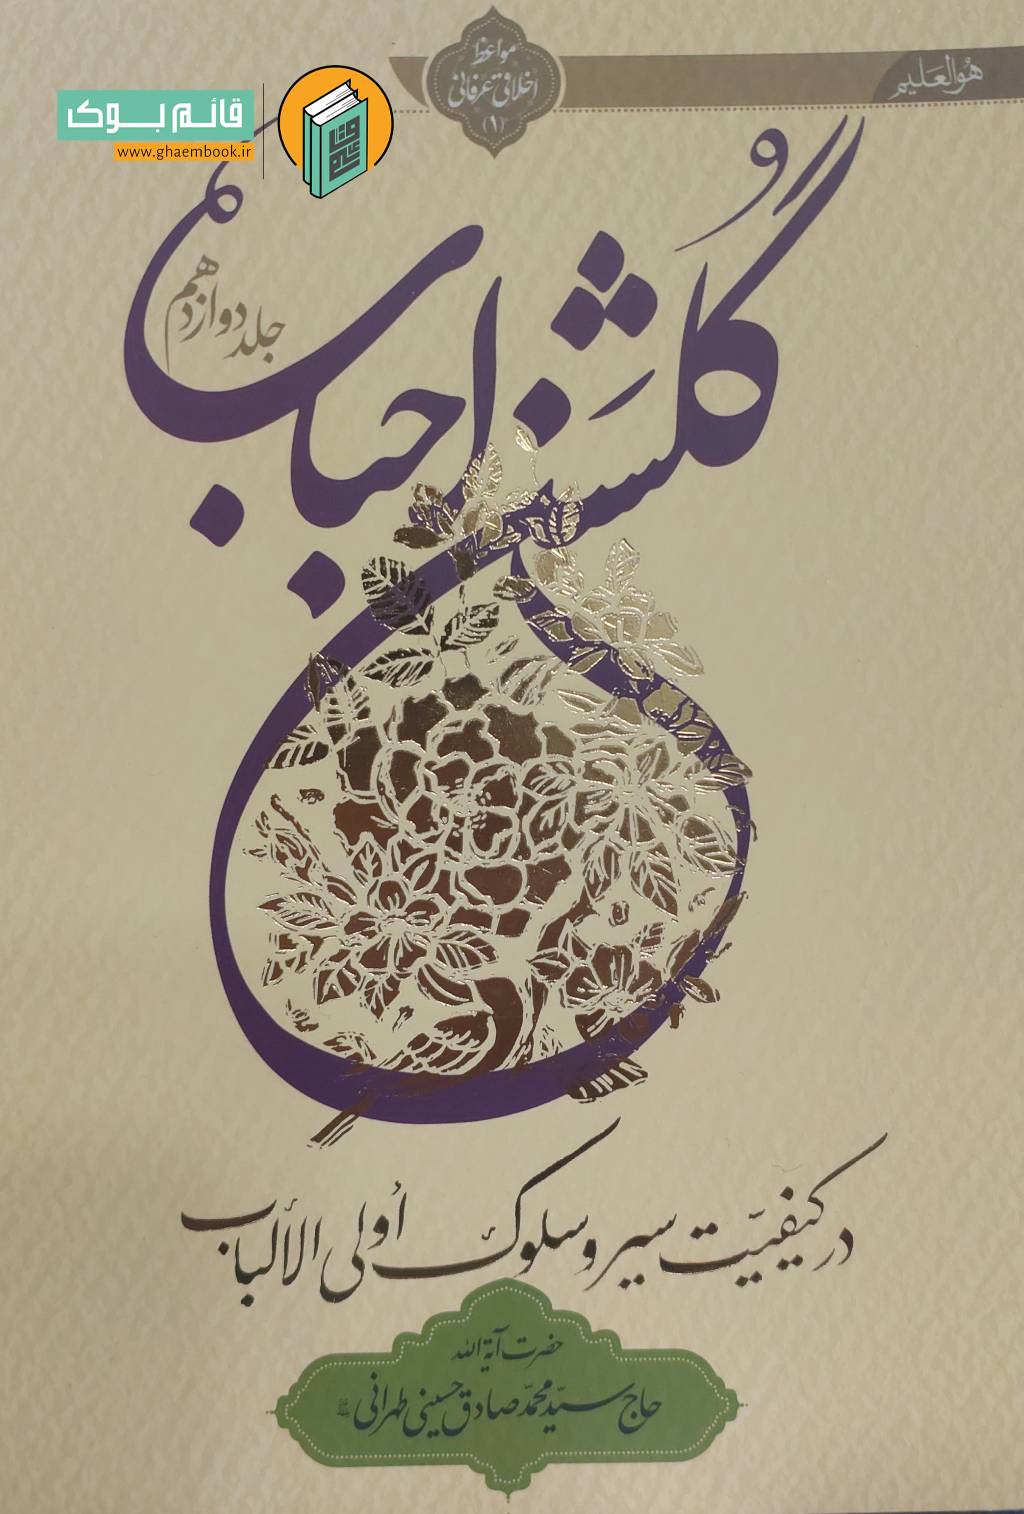 هُوَالعَلیم
مواعظ
اخلاقی عرفانی
(۱)
قائم بوک
www.ghaembook.ir
گلشن احباب
جلد دوازدهم
در کیفیّت سیر و سلوک اُولی الألباب
حضرت آیة الله
حاج سیّد محمّد صادق حسینی طهرانی